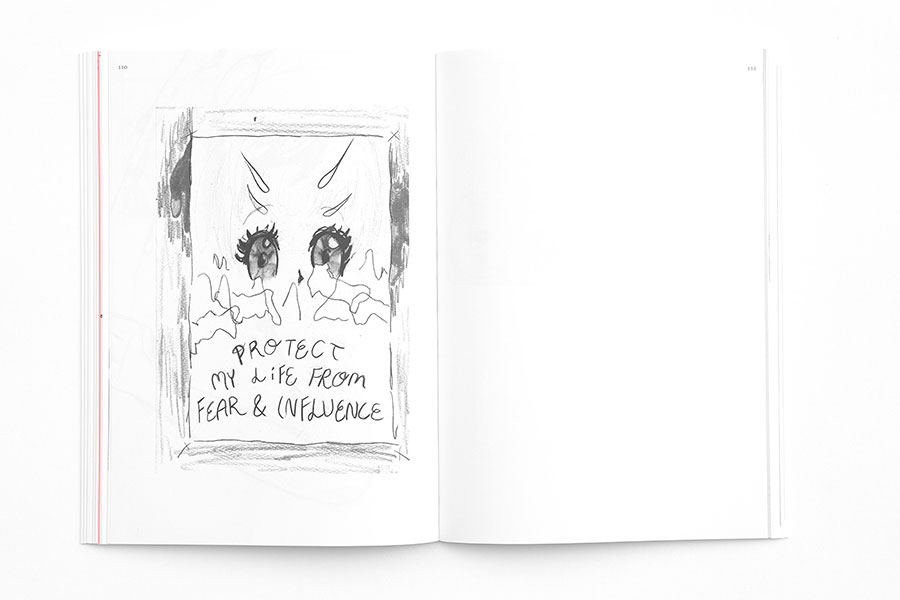 110
111
PROTECT
MY LiFE FROM
FEAR & INFLUENCE